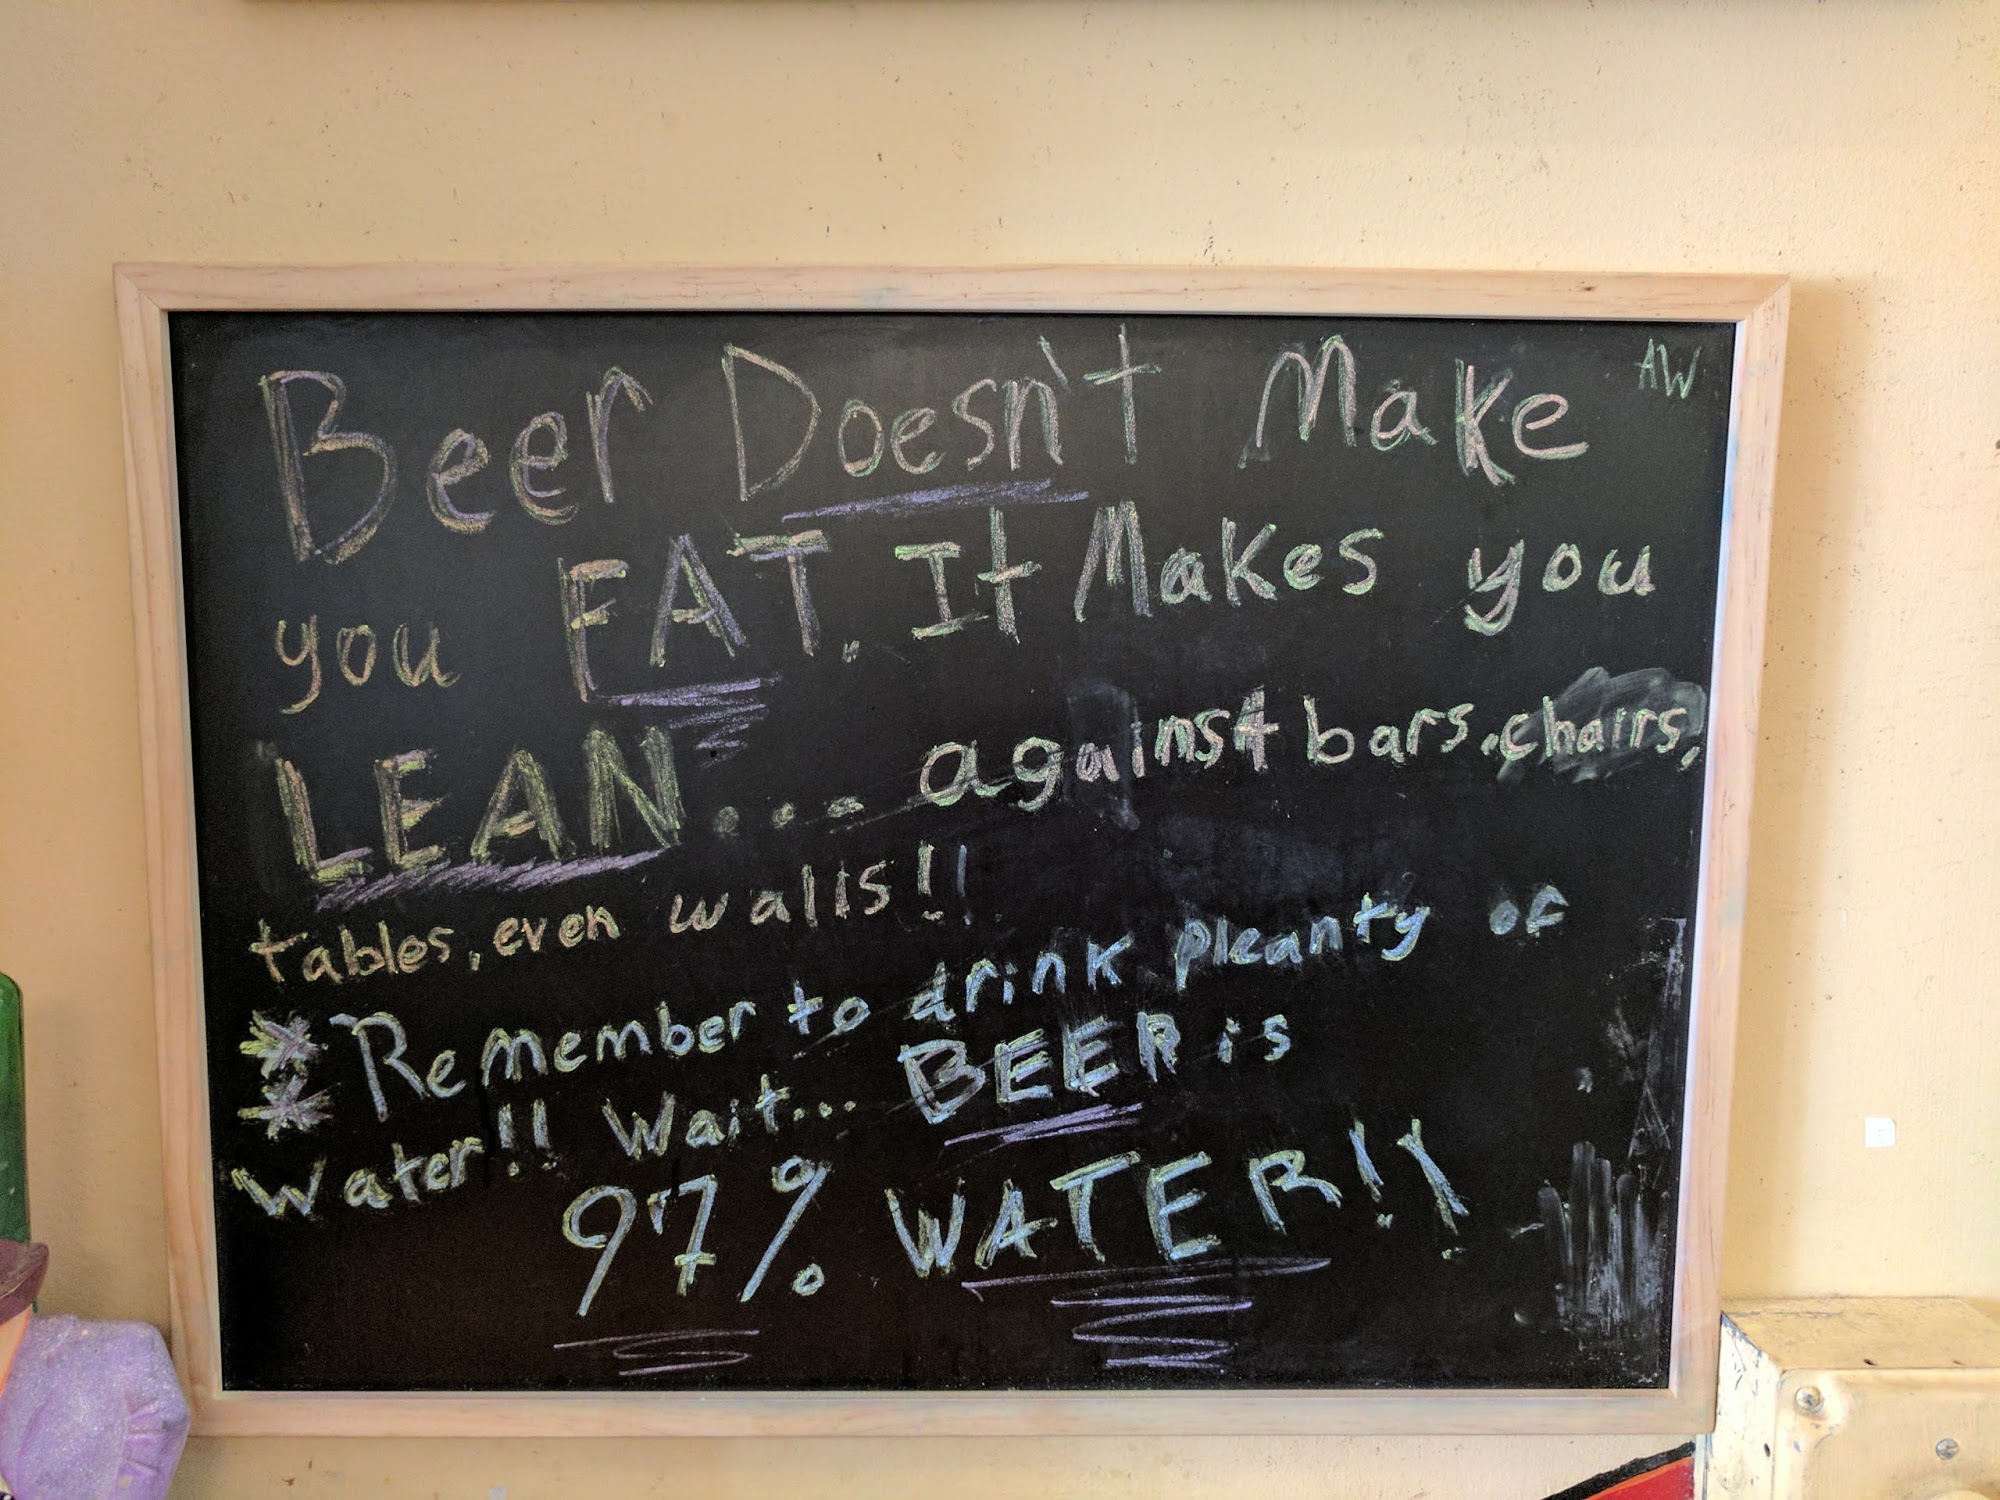 AW
Beer Doesn't Make
you FAT. It Makes you
LEAN... against bars, chairs,
tables, even walls!!
** Remember to drink pleanty of
Water!! Wait... BEER is
97% WATER!!